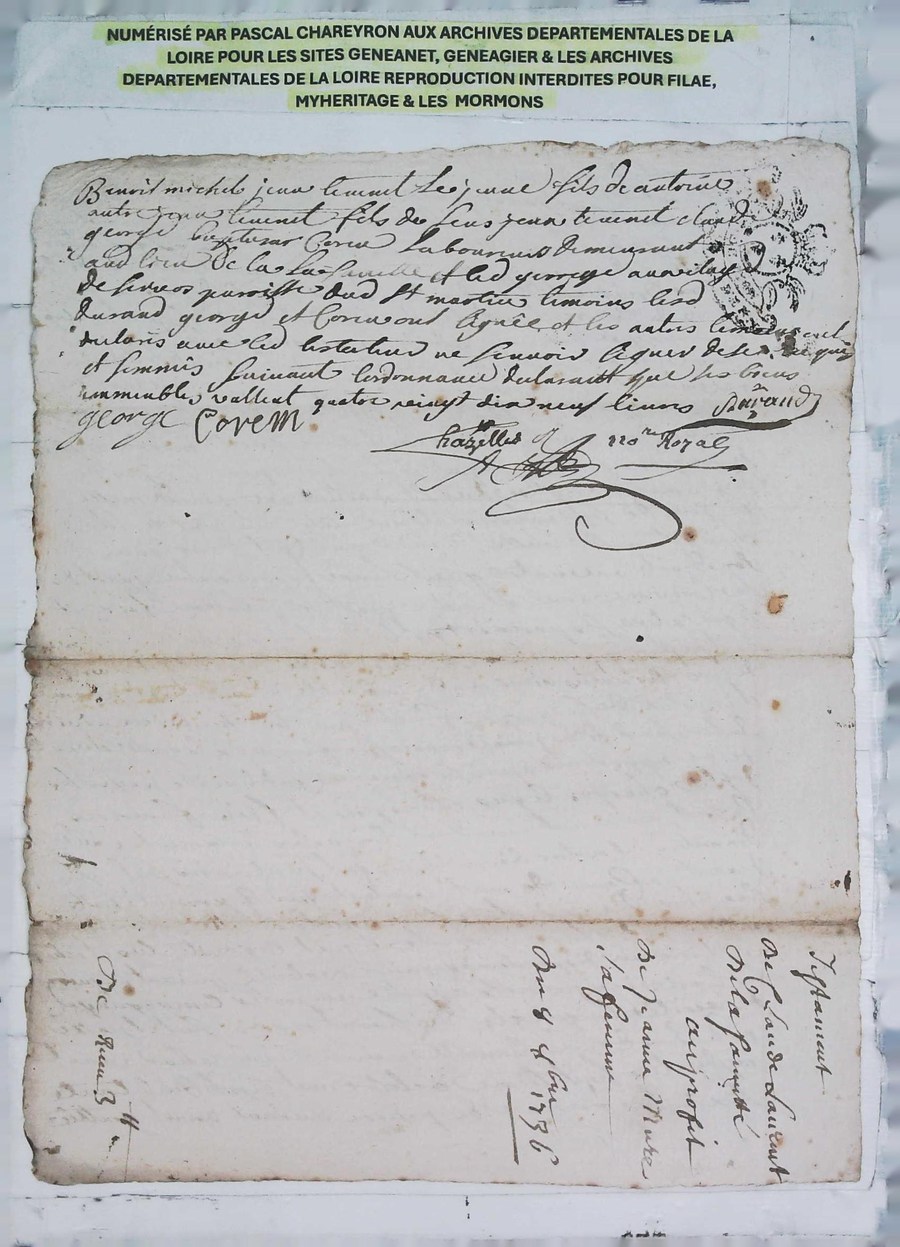 NUMÉRISÉ PAR PASCAL CHAREYRON AUX ARCHIVES DEPARTEMENTALES DE LA
LOIRE POUR LES SITES GENEANET, GENEAGIER & LES ARCHIVES
DEPARTEMENTALES DE LA LOIRE REPRODUCTION INTERDITES POUR FILAE,
MYHERITAGE & LES MORMONS
Benoit michel jean tevenet Le jeune fils de antoine
autre jean tevenet fils de feus jean tevenet claude
george Corem Laboureurs demeurant
aud lieu de la et led george au vilage
de paroisse dud St martin temoins lesd
durand george et Corem ont signée et les autres
declaré avec led testateur ne sçavoir signer de ce enquis
et sommés suivant lordonnance declarant que ses biens
immeubles vallent quatre vingt dix neuf livres Durand
george Corem
Chazelles no.re Royal
Testament
De Claude Laurent
De la
au profit
De Jeanne Mure
sa femme
Du 8 8bre 1736